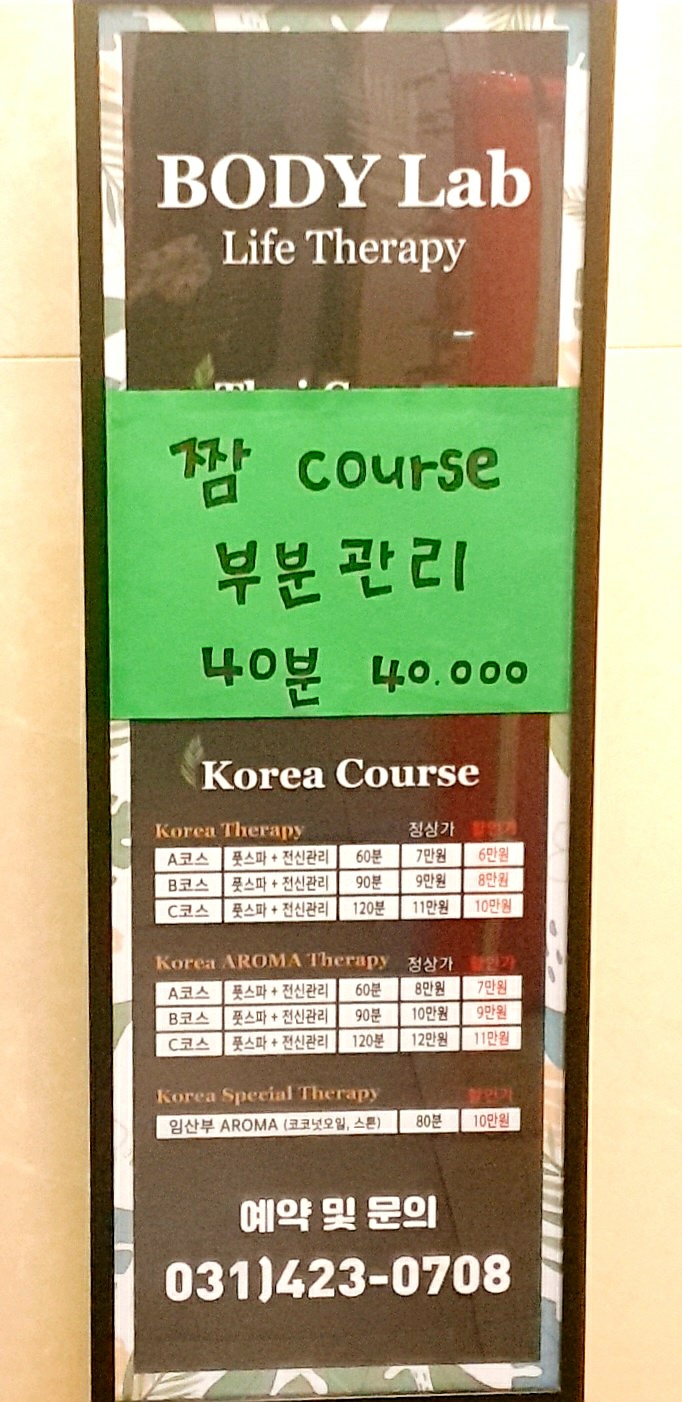 BODY Lab
Life Therapy
짬 course
부분관리
40분 40.000
Korea Course
Korea Therapy 정상가 할인가
A코스 풋스파 + 전신관리 60분 7만원 6만원
B코스 풋스파 + 전신관리 90분 9만원 8만원
C코스 풋스파 + 전신관리 120분 11만원 10만원
Korea AROMA Therapy 정상가 할인가
A코스 풋스파 + 전신관리 60분 8만원 7만원
B코스 풋스파 + 전신관리 90분 10만원 9만원
C코스 풋스파 + 전신관리 120분 12만원 11만원
Korea Special Therapy 할인가
임산부 AROMA (코코넛오일, 스톤) 80분 10만원
예약 및 문의
031)423-0708